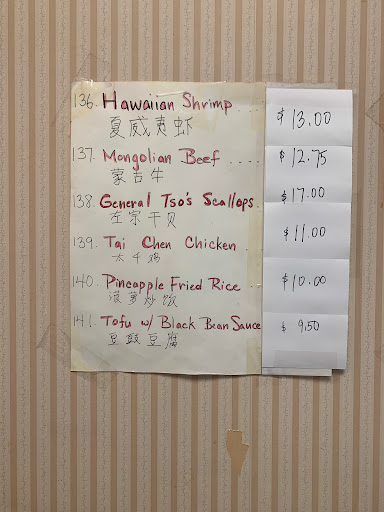 136. Hawaiian Shrimp ... $13.00
夏威夷虾
137. Mongolian Beef .... $12.75
蒙古牛
138. General Tso's Scallops. $17.00
左宗干贝
139. Tai Chen Chicken . $11.00
太千鸡
140. Pineapple Fried Rice .. $10.00
菠萝炒饭
141. Tofu w/ Black Bean Sauce $9.50
豆豉豆腐